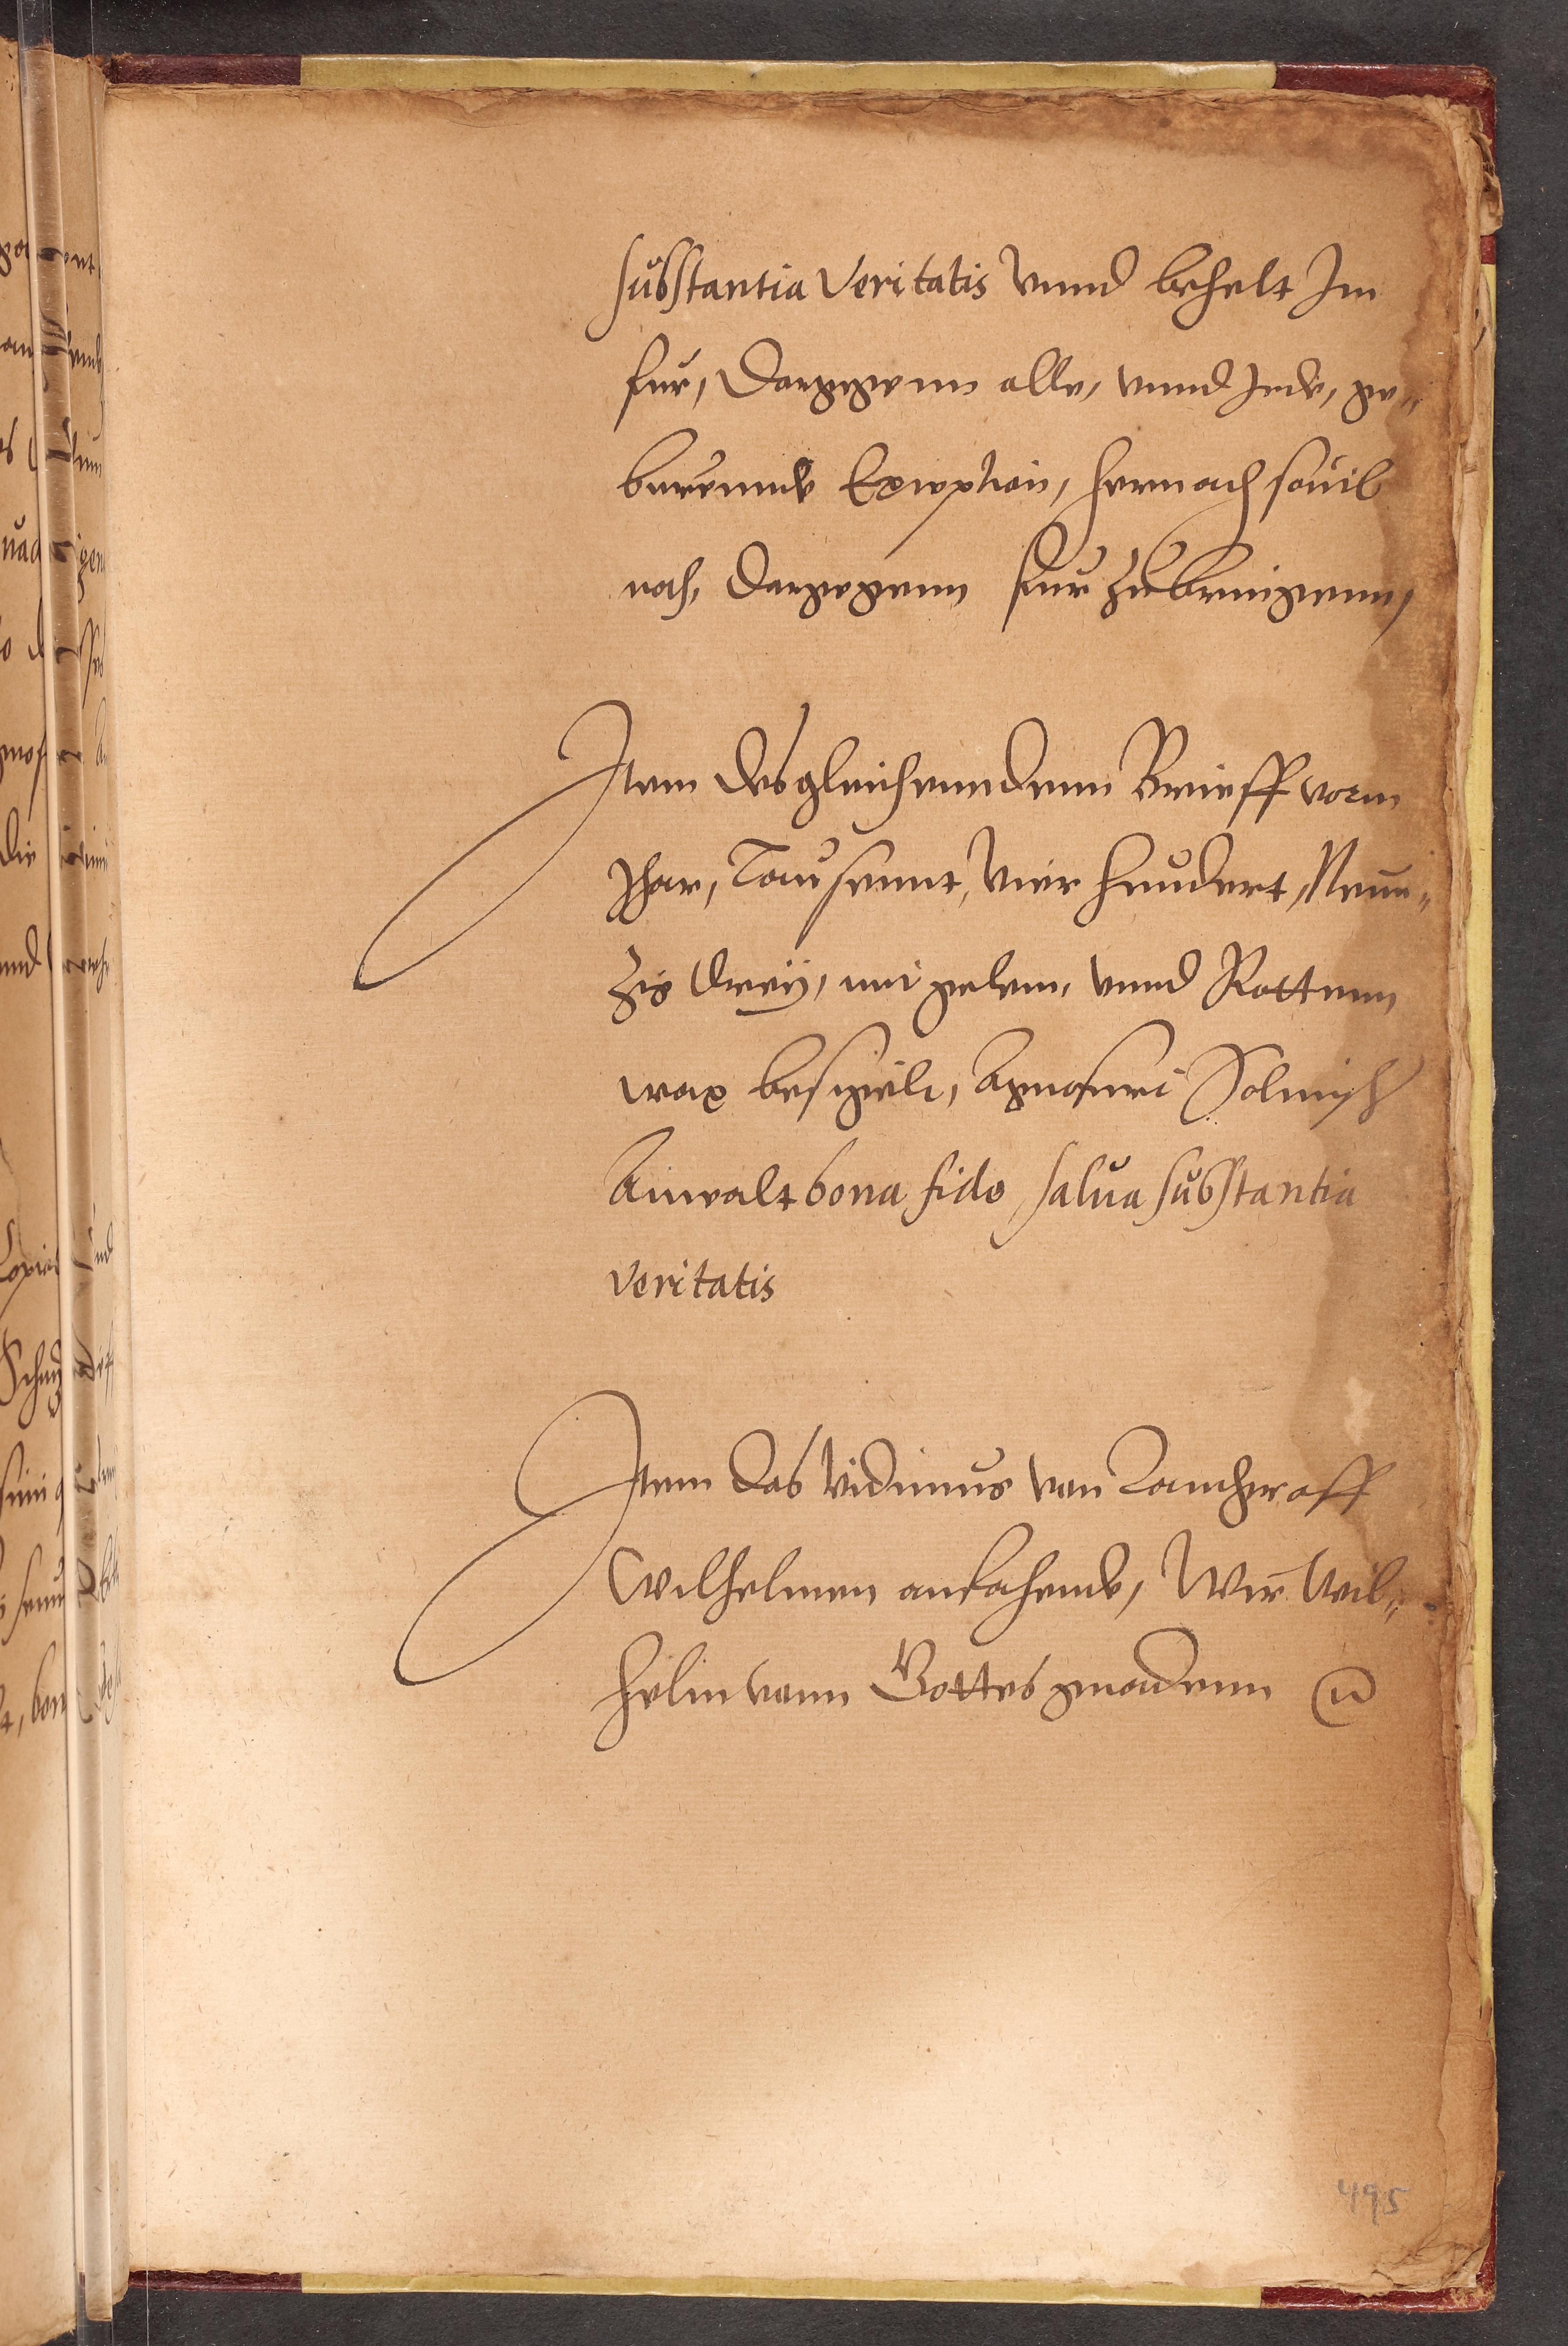 substantia Veritatis Vnnd behelt Im
fur, Dargegenn alle, vnnd Jede, ge„
burennde Exception, hernach souil
noth, Dargegenn fur zubringenn,
Item desgleichenn denn Brieff vorm
Jhar, Tausennt, Vier hundert, Neun„
zig Drey, mit gelem, vnnd Rottenn
wax besigelt, Agnoscirt Solmisch
Anwalt bona fide, salua substantia
Veritatis
Item das Vidimus von Landtgraff
Wilhelmen anfahende, Wir Wil„
helm vonn Gottes gnadenn
495